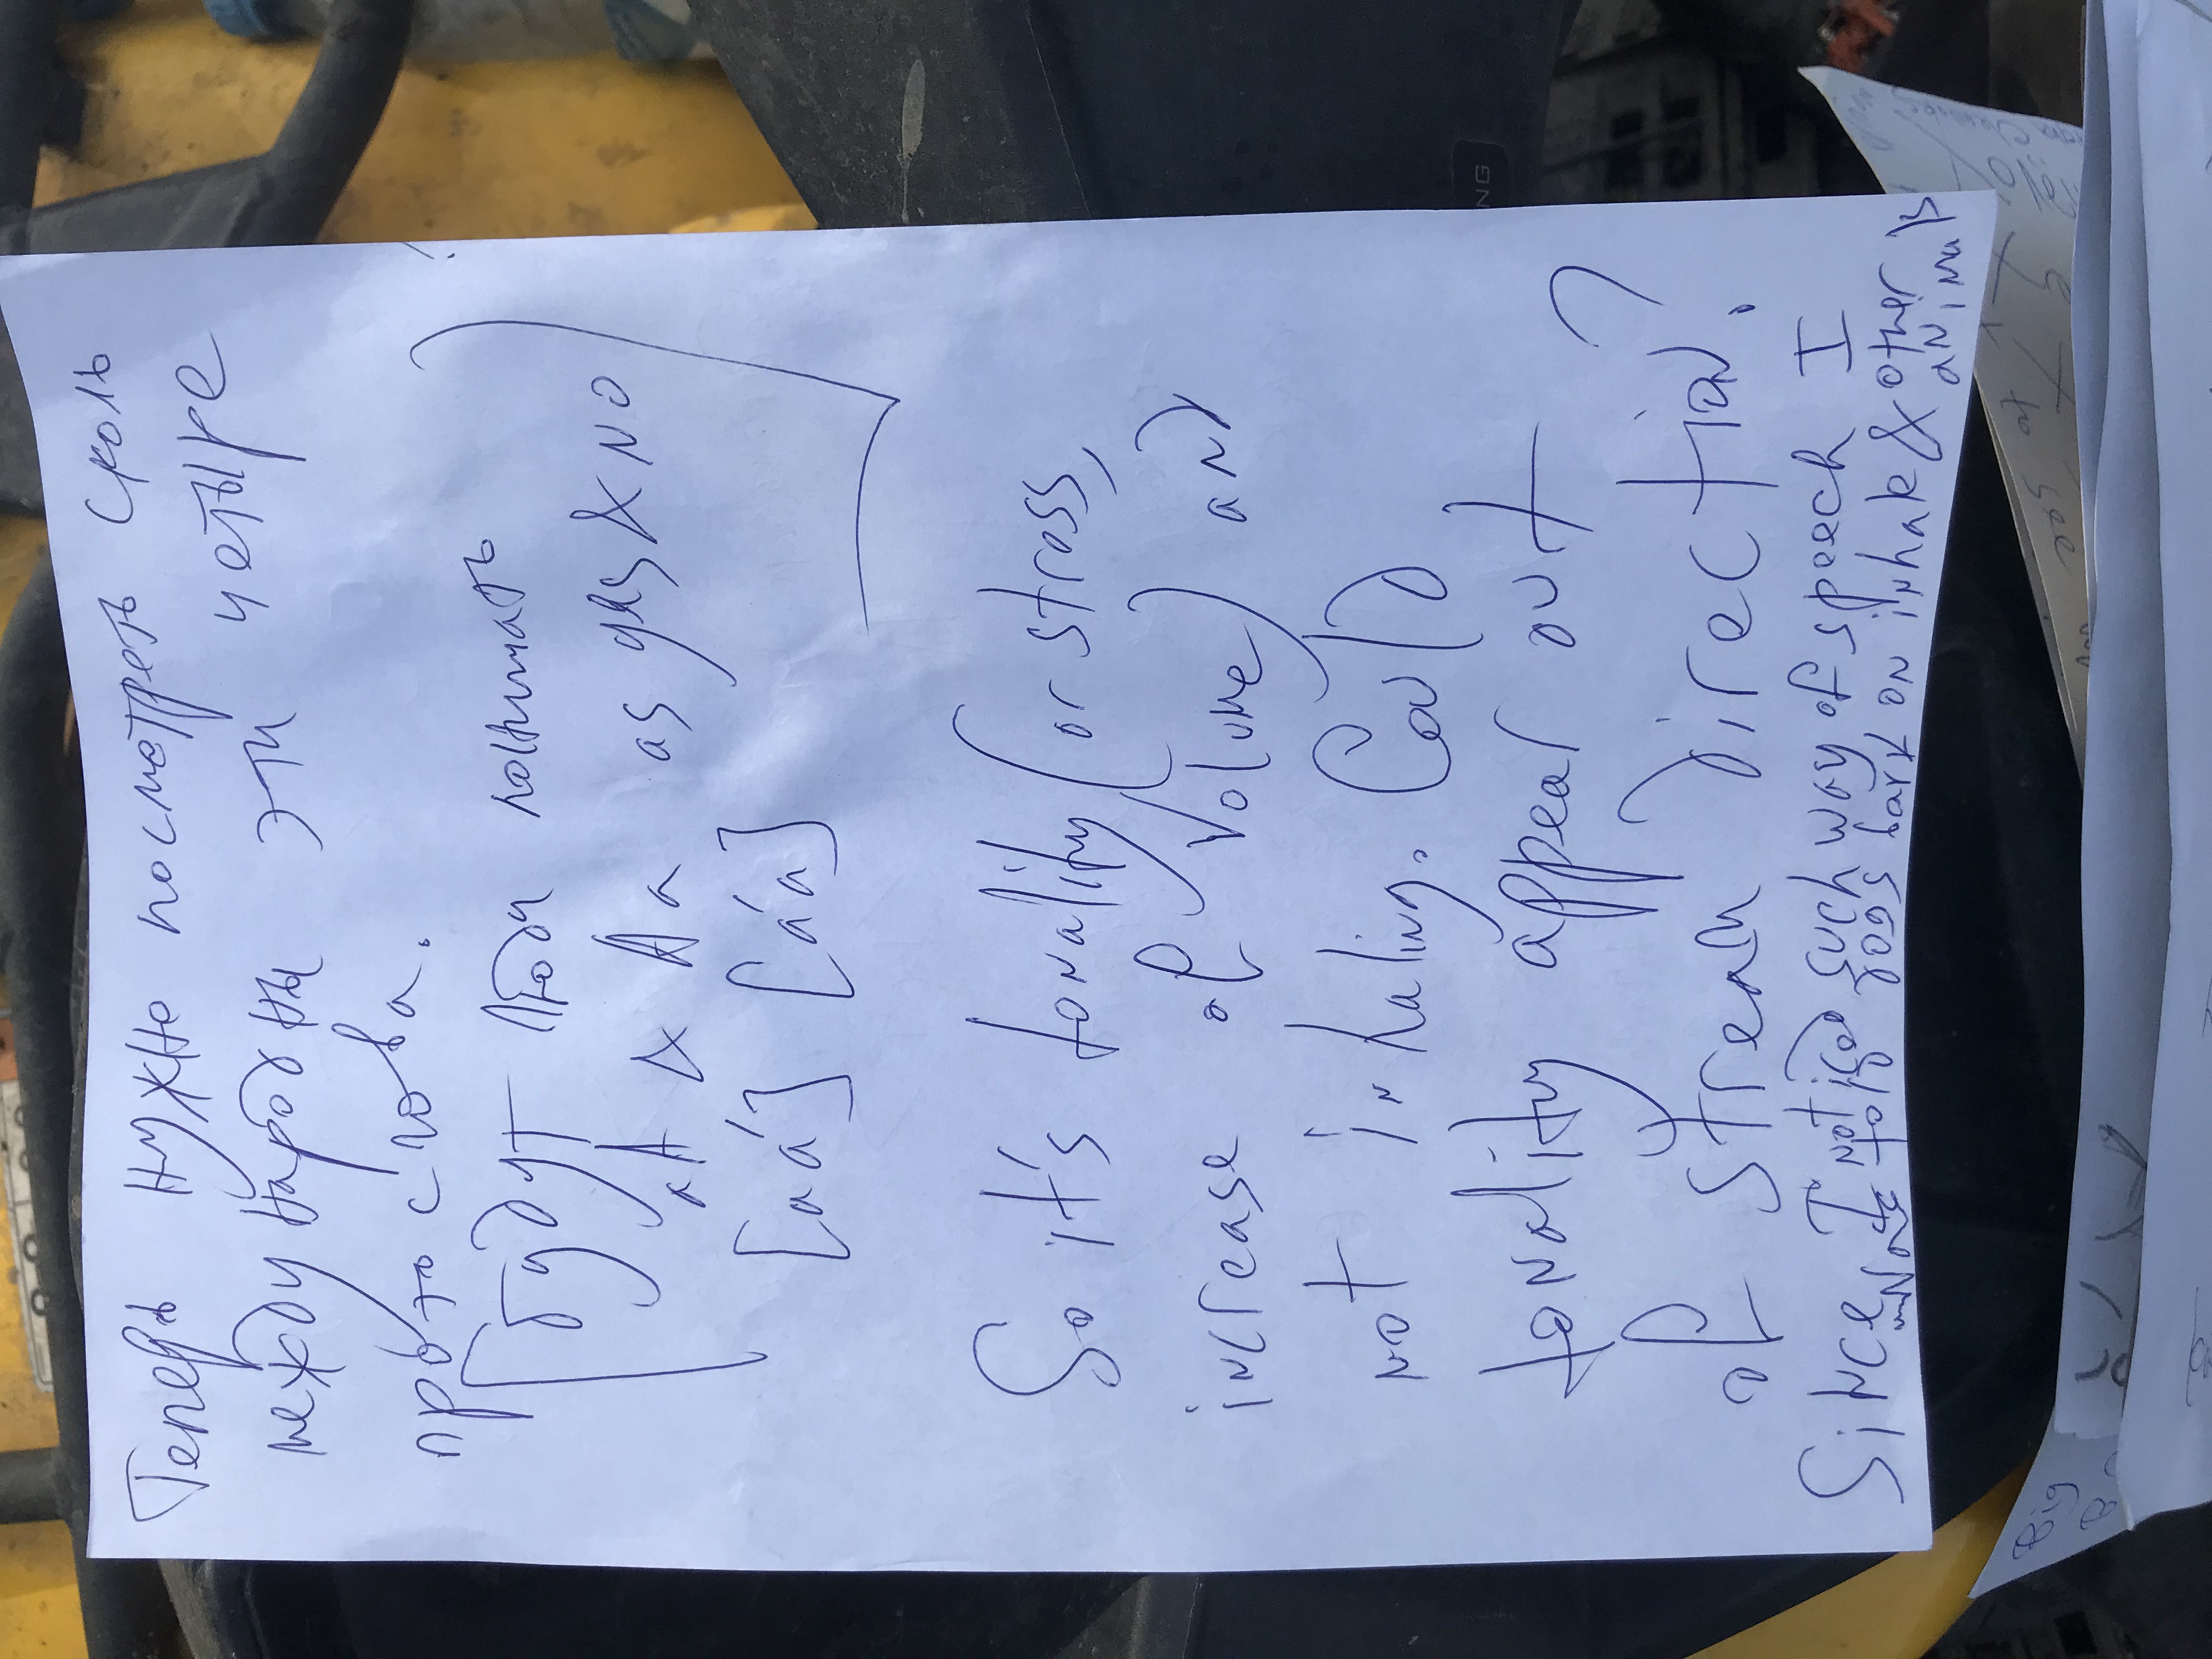 Теперь нужно посмотреть сколь
международны эти четыре
прото слова.
будут люди понимать ?
aA & Aa as yes & no
[aá] [áa]
So it's tonality (or stress,
increase of volume) and
not inhaling. Could
tonality appear out
of stream direction?
Since I noticed such way of speech I
was told dogs bark on inhale & other
animals
NG
Big
see
to